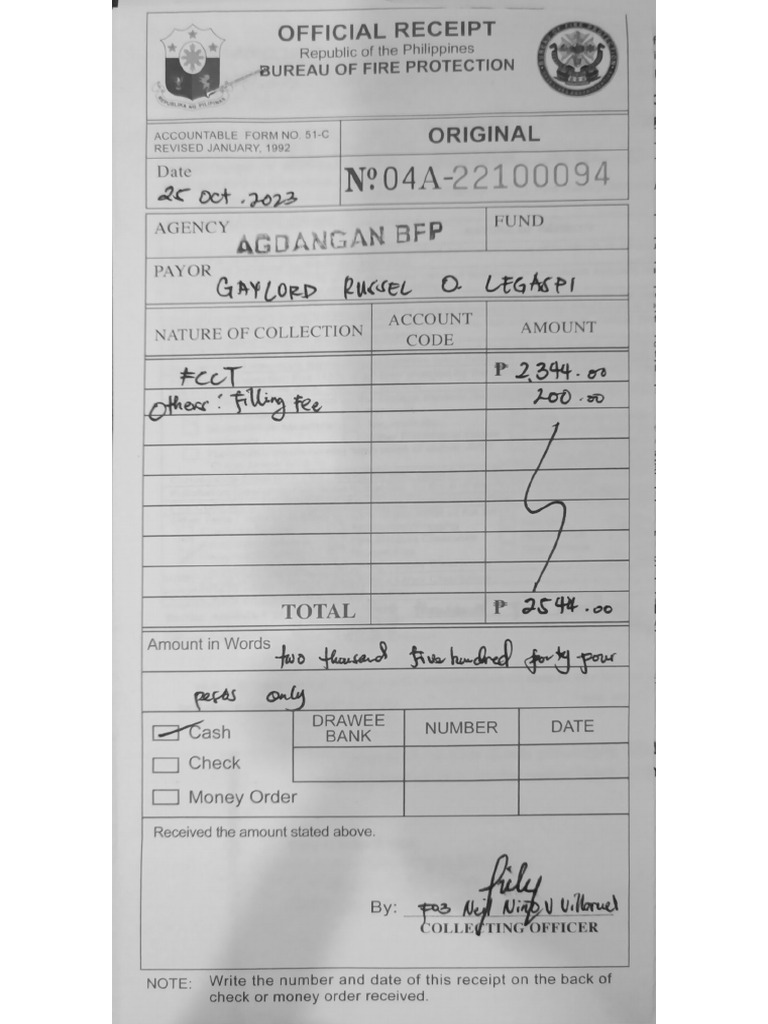 OFFICIAL RECEIPT
Republic of the Philippines
BUREAU OF FIRE PROTECTION
REPUBLIKA NG PILIPINAS
ACCOUNTABLE FORM NO. 51-C
REVISED JANUARY, 1992
ORIGINAL
Date
25 Oct. 2023
Nº 04A-22100094
AGENCY AGDANGAN BFP FUND
PAYOR GAYLORD RUSSEL O. LEGASPI
NATURE OF COLLECTION ACCOUNT CODE AMOUNT
FCCT ₱ 2,344.00
Others: Filling Fee 200.00
TOTAL ₱ 2544.00
Amount in Words two thousand five hundred forty four
pesos only
Cash
Check
Money Order
DRAWEE BANK NUMBER DATE
Received the amount stated above.
By: FO3 Nejl Niño V Villaruel
COLLECTING OFFICER
NOTE: Write the number and date of this receipt on the back of
check or money order received.